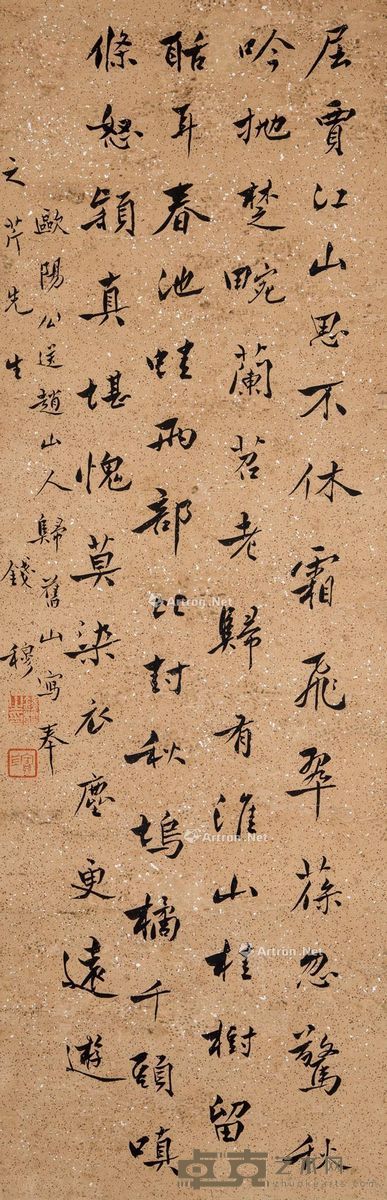 屈賈江山思不休霜飛翠葆忽驚秋
吟拋楚畹蘭苕老歸有淮山桂樹留
聒耳春池蛙兩部比封秋塢橘千頭嗔
條怒穎真堪愧莫染衣塵更遠遊
歐陽公送趙山人歸舊山寫奉
之芹先生 錢穆
Artron.Net
Artron.Net
Artron.Net
Artron.Net
卓克艺术网